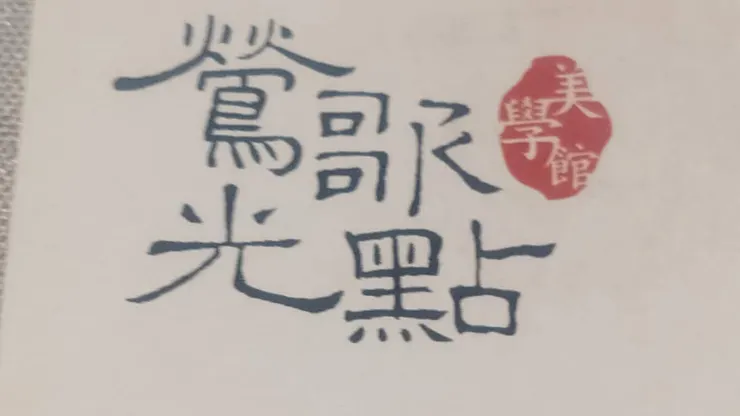 鶯歌
光點
美學館